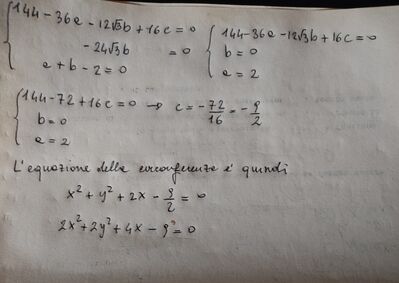 144 - 36a - 12√3b + 16c = 0
- 24√3b = 0
a + b - 2 = 0
144 - 36a - 12√3b + 16c = 0
b = 0
a = 2
144 - 72 + 16c = 0 → c = - 72/16 = - 9/2
b = 0
a = 2
L'equazione della circonferenza è quindi
x² + y² + 2x - 9/2 = 0
2x² + 2y² + 4x - 9 = 0